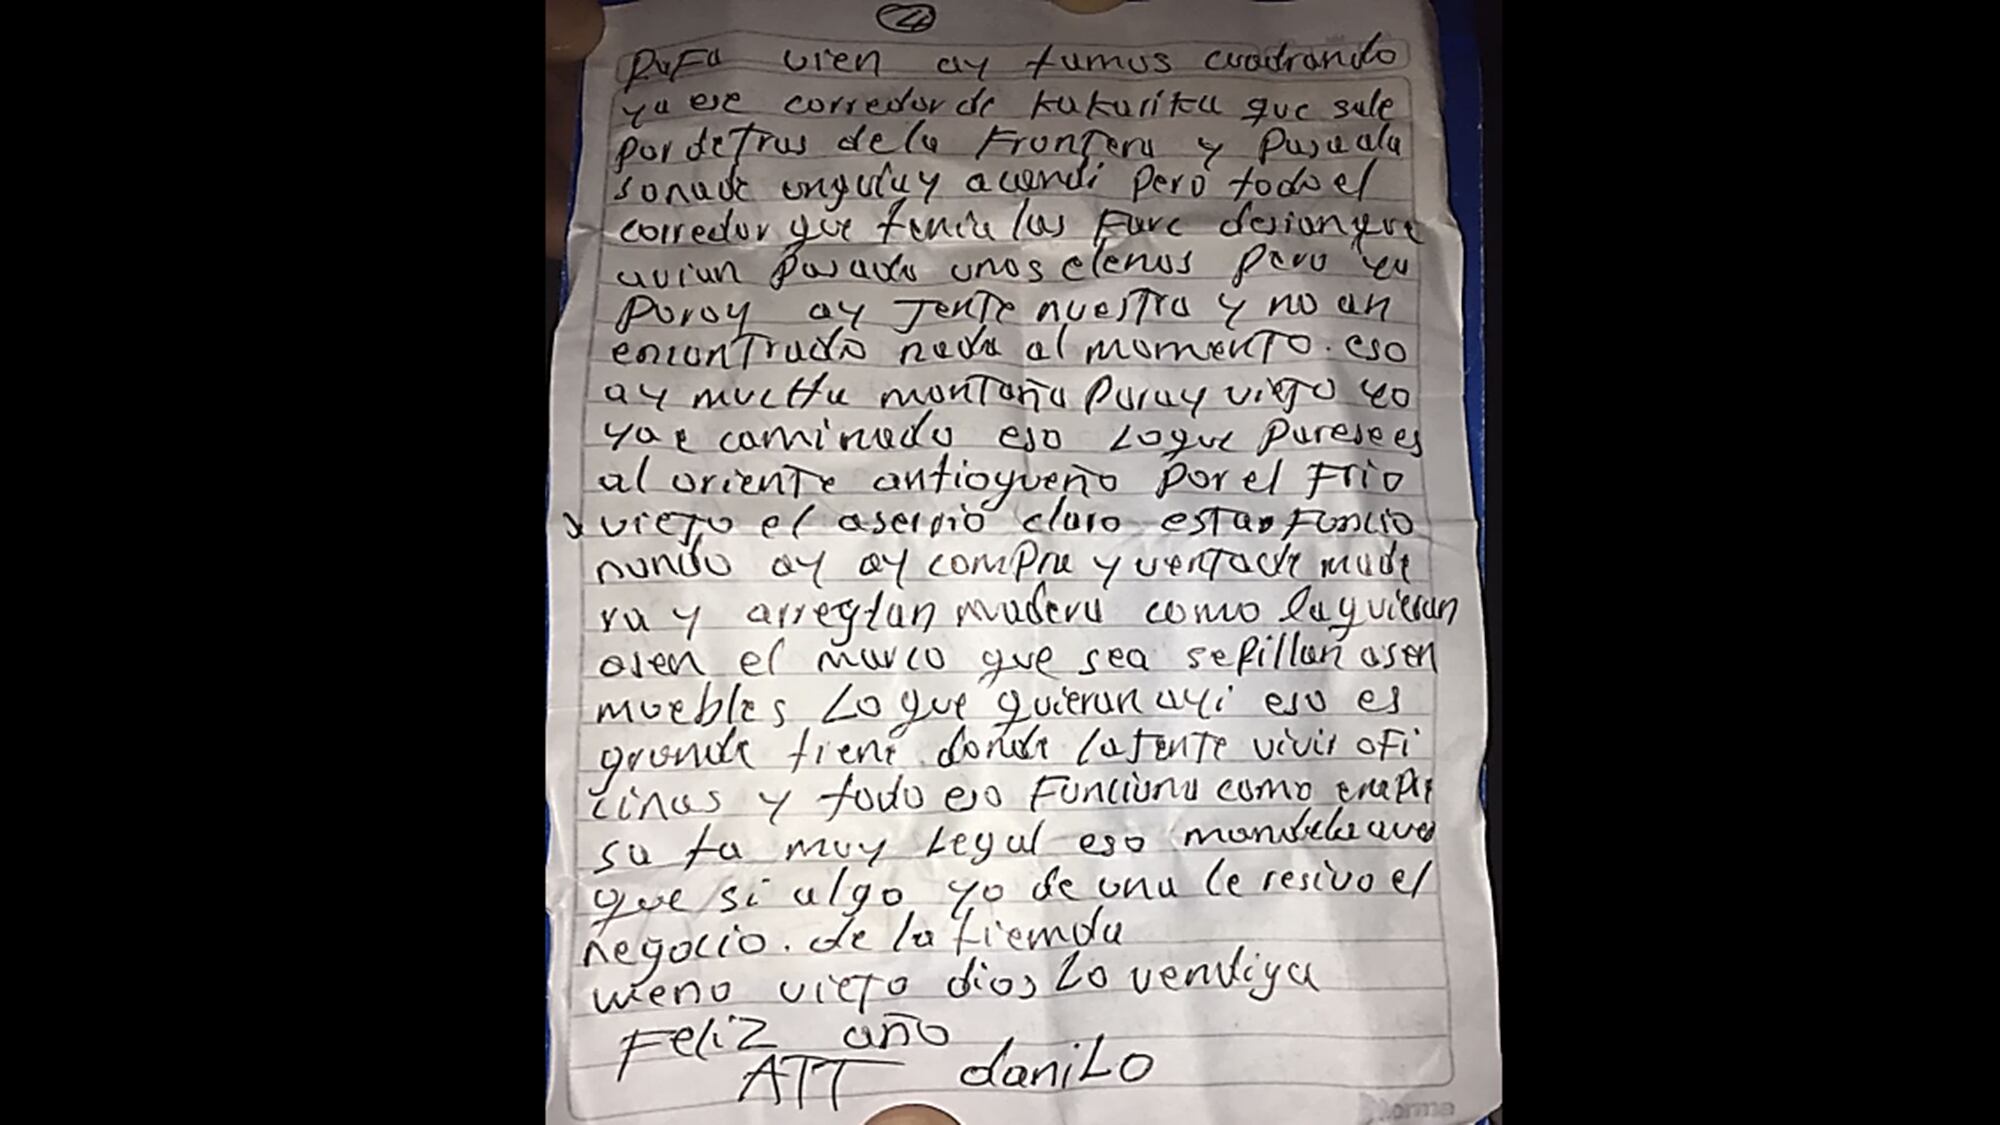 4
RaFa vien ay tamos cuadrando
ya ese corredor de kukarika que sale
por detras de la Frontera y Pasa ala
sonade y acandi pero todo el
corredor que tenia las Farc
avian Pasado unos elenos pero ya
Poray ay jente nuestra y no an
encontrado nada al momento. eso
ay mucha montaña Poray viejo yo
ya e caminado eso Loque Parese es
al oriente antioqueño Por el Frio
y viejo el aserrio claro esta Funcio
nando ay ay compra y venta de made
ra y arreglan madera como la quieran
asen el marco que sea sepillan asen
muebles Lo que quieran ayi eso es
grande tiene donde la jente vivir ofi
cinas y todo eso Funciona como empre
sa ta muy Legal eso mandela aver
que si algo yo de una le resivo el
negocio. de la tiemda
weno viejo dios Lo vendiga
Feliz año
ATT daniLo
Norma